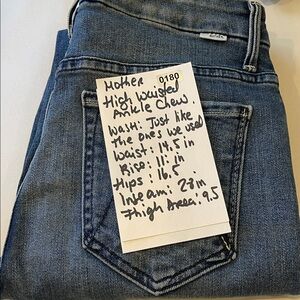 Mother 0180
High Waisted
Ankle Chew
Wash: Just like
The ones we used
Waist: 14.5 in
Rise: 11 in
Hips: 16.5
Inseam: 28 in
Thigh Area: 9.5